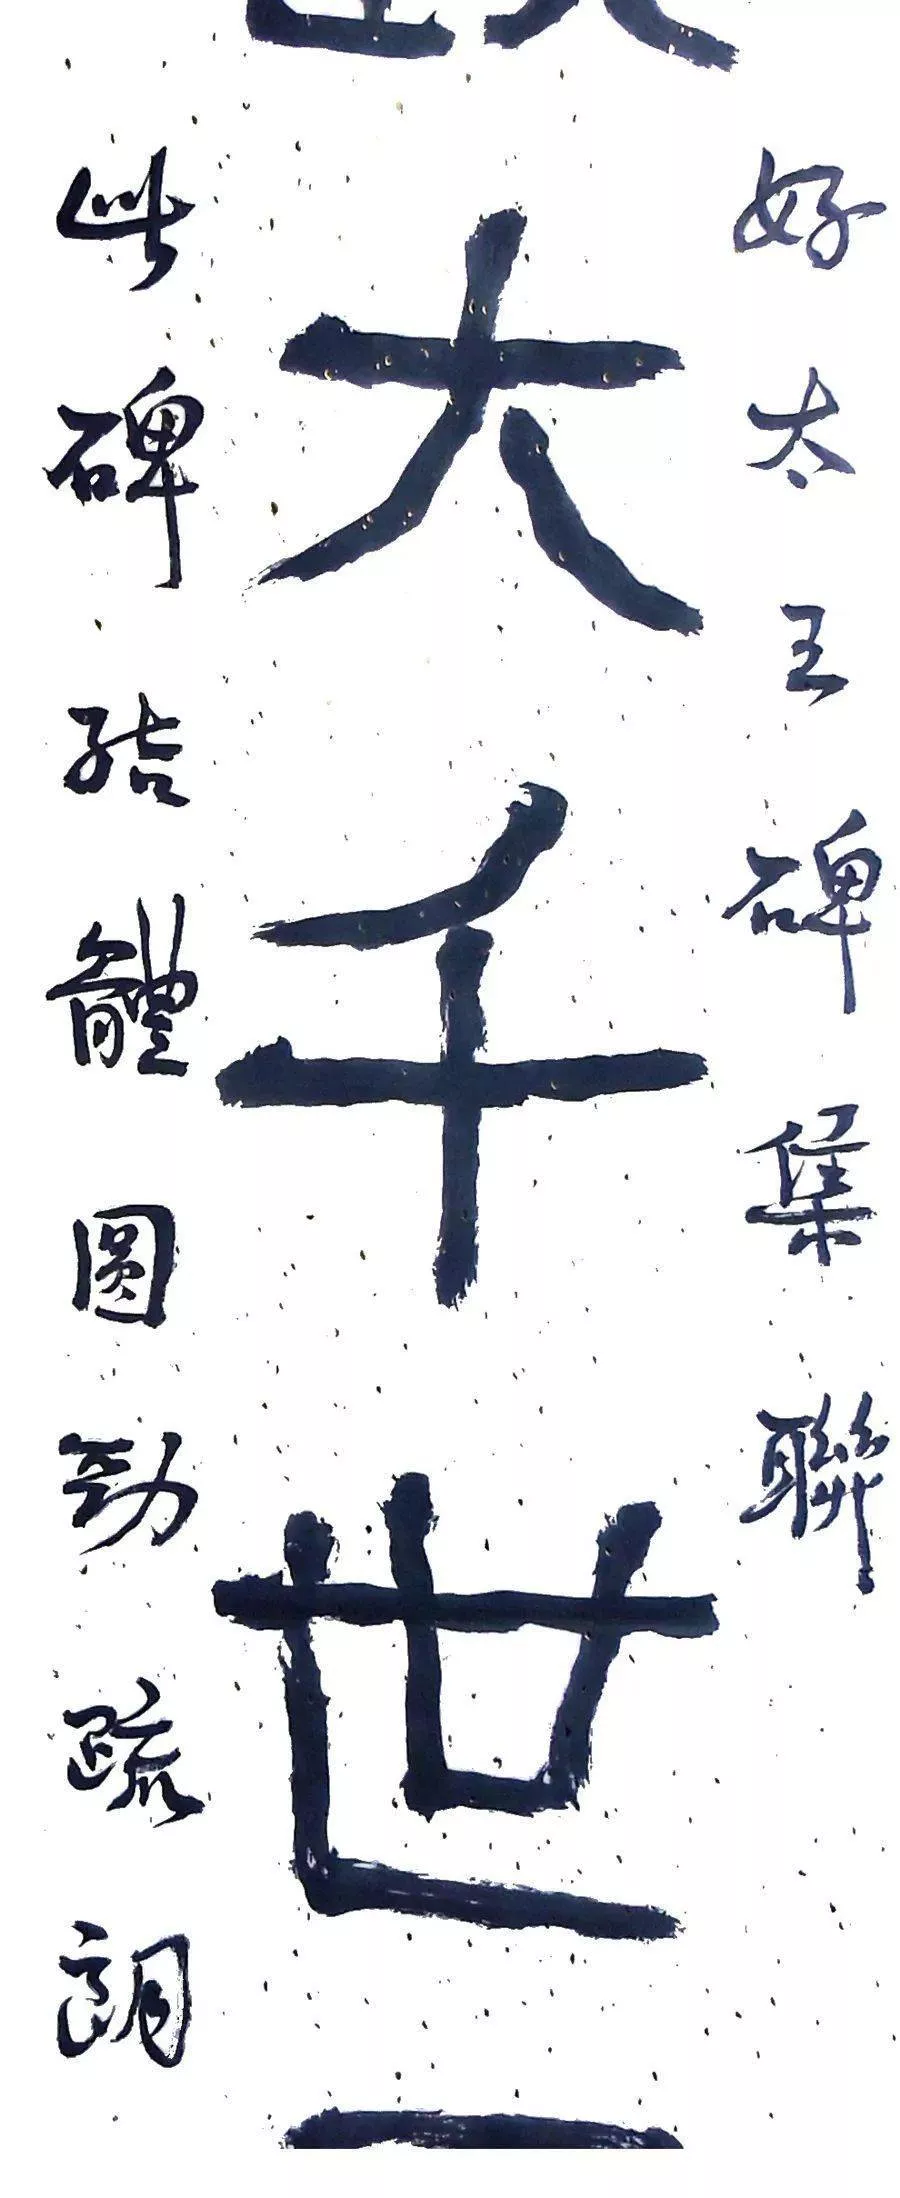 好太王碑集聯
大千世
此碑结體圓勁疏朗